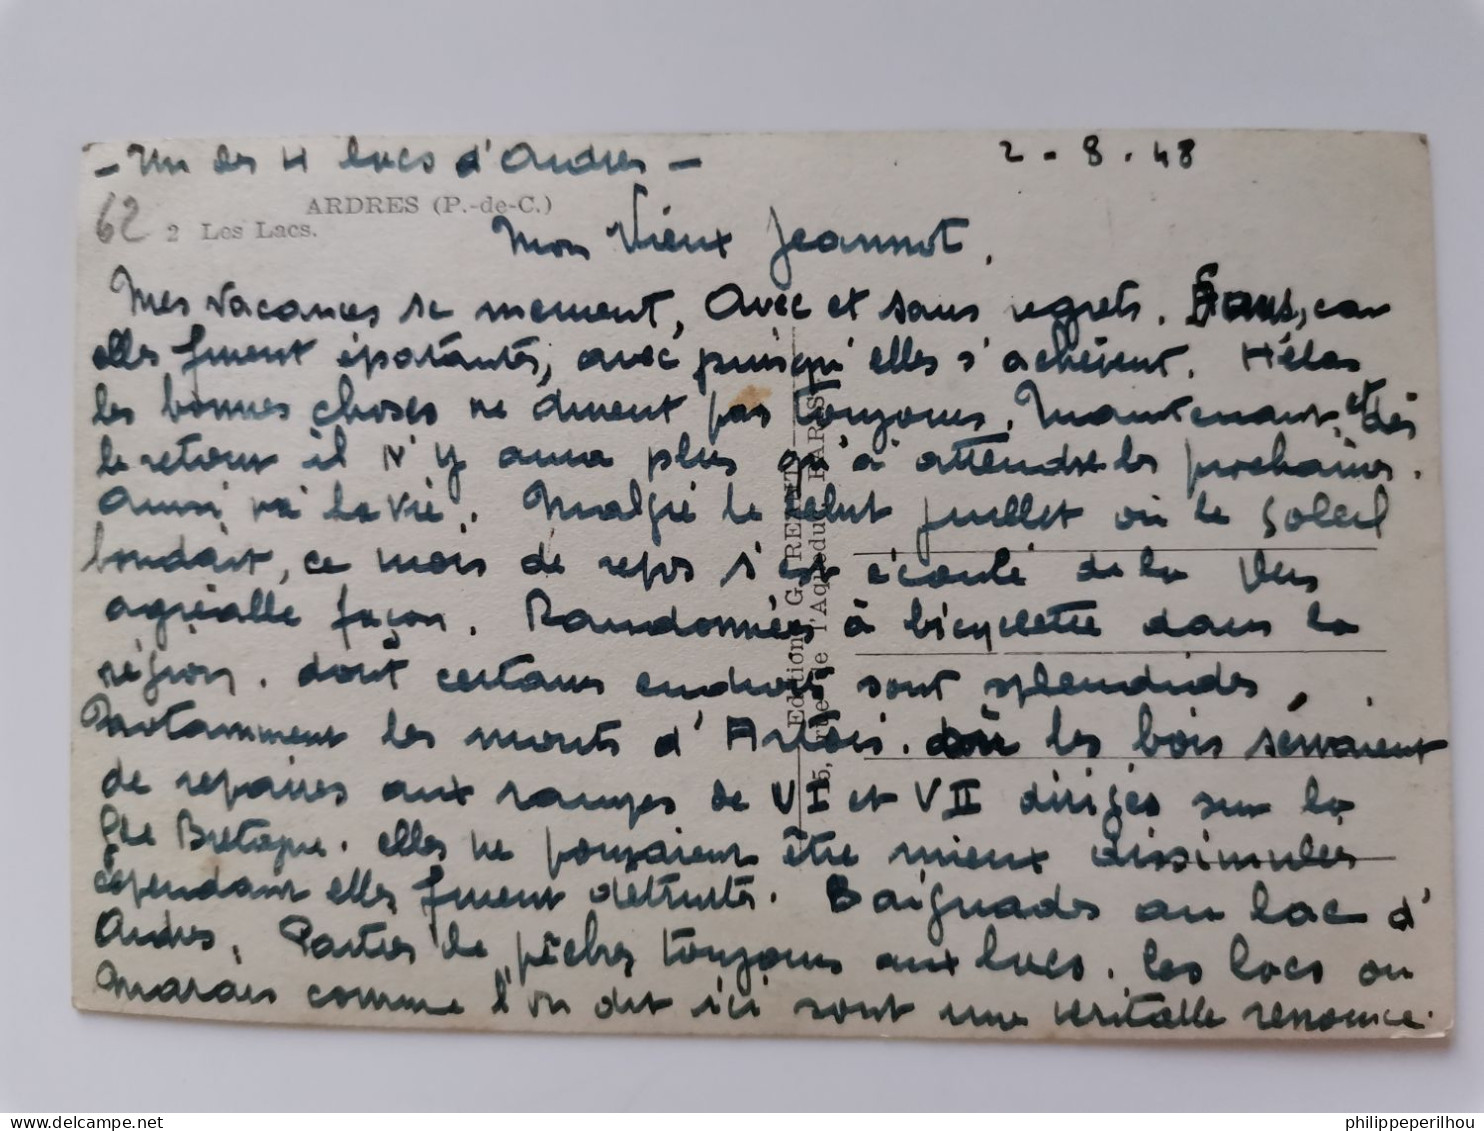 - Un des 4 lacs d'Ardres -
2 - 8 - 48
62
ARDRES (P.-de-C.)
2 Les Lacs.
Mon Vieux Jeannot,
Mes vacances se meurent, avec et sans regrets. Sans, car
elles furent épatantes, avec puisqu'elles s'achèvent. Hélas
les bonnes choses ne durent pas toujours. Maintenant, et dès
le retour il n'y aura plus qu'à attendre les prochaines.
Ainsi va la vie. Malgré le début juillet où le soleil
boudait, ce mois de repos s'est écoulé de la plus
agréable façon. Randonnées à bicyclette dans la
région. dont certains endroits sont splendides,
Notamment les monts d'Artois. dont les bois servaient
de repaires aux rampes de VI et VII dirigés sur la
Gde Bretagne. elles ne pouvaient être mieux dissimulées
cependant elles furent détruites. Baignades au lac d'
Ardres. Parties de pêches toujours aux lacs. Ces lacs ou
Marais comme l'on dit ici sont une véritable renommée.
Edition G. REANT
15, rue de l'Aqueduc PARIS
delcampe.net
philippeperilhou